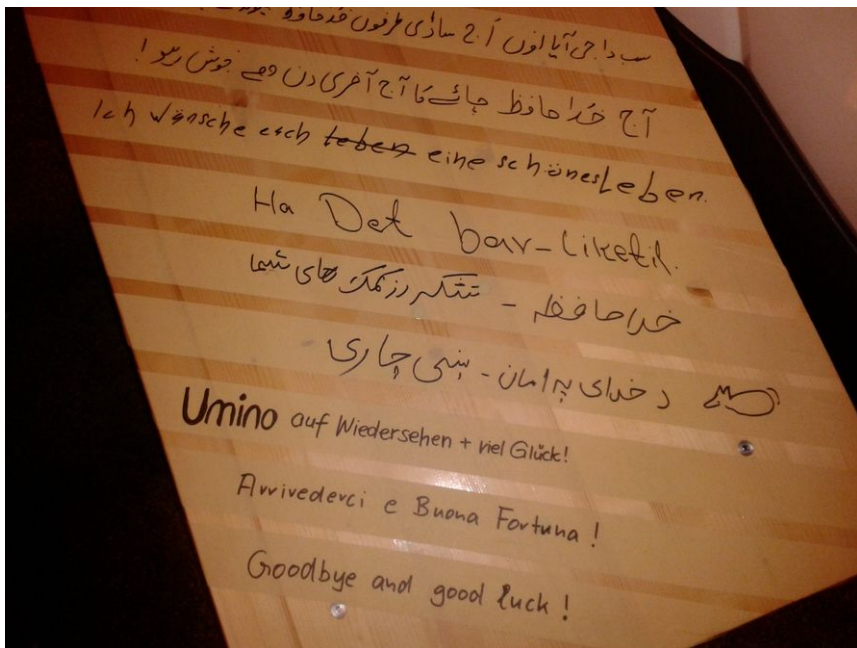 سب دا جی آیا اوں آج ساڈی طرفوں
آج خدا حافظ جائے گا آج آخری دن هے خوش رہو!
Ich wünsche euch leben eine schönes Leben.
Ha Det bav-liketil.
خداحافظ - تشکر از کمک های شما
د خدای په امان - بنی چاری
Umino auf Wiedersehen + viel Glück!
Arrivederci e Buona Fortuna!
Goodbye and good luck!